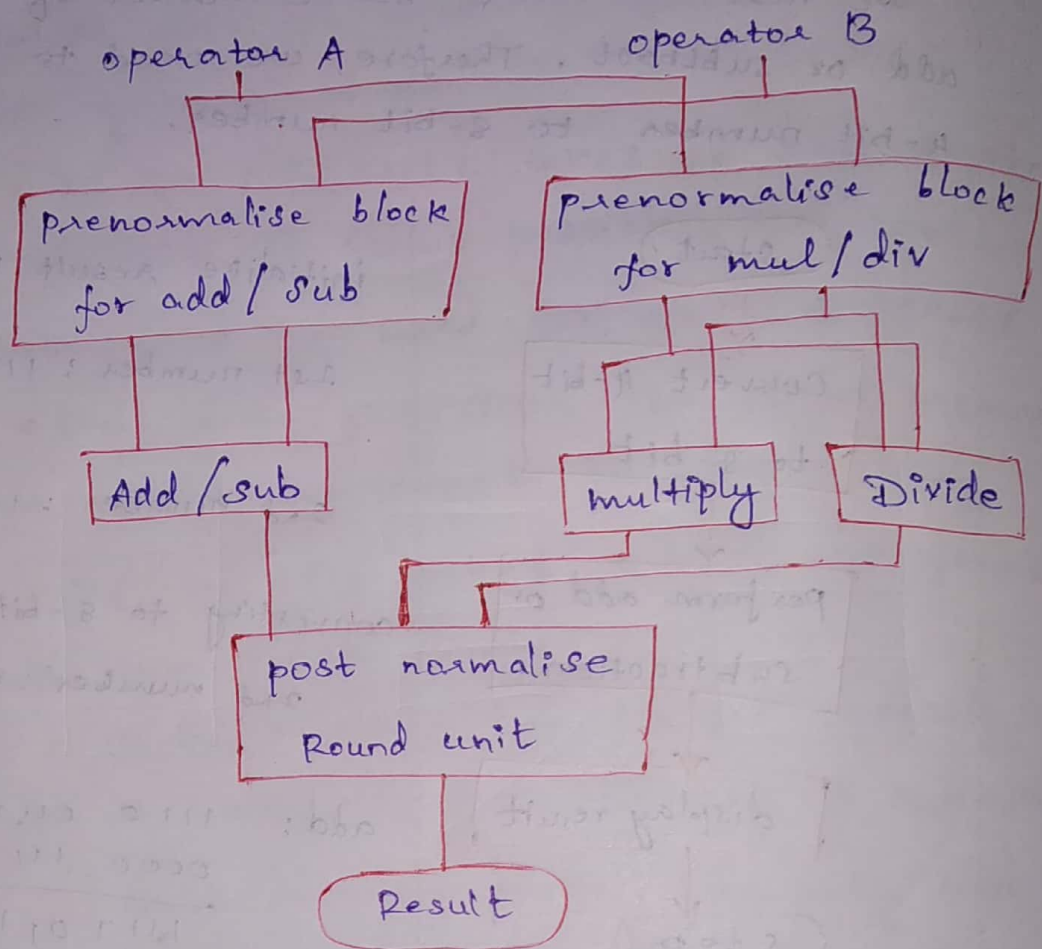 operator A
operator B
prenormalise block
for add / sub
prenormalise block
for mul / div
Add / sub
multiply
Divide
post normalise
Round unit
Result